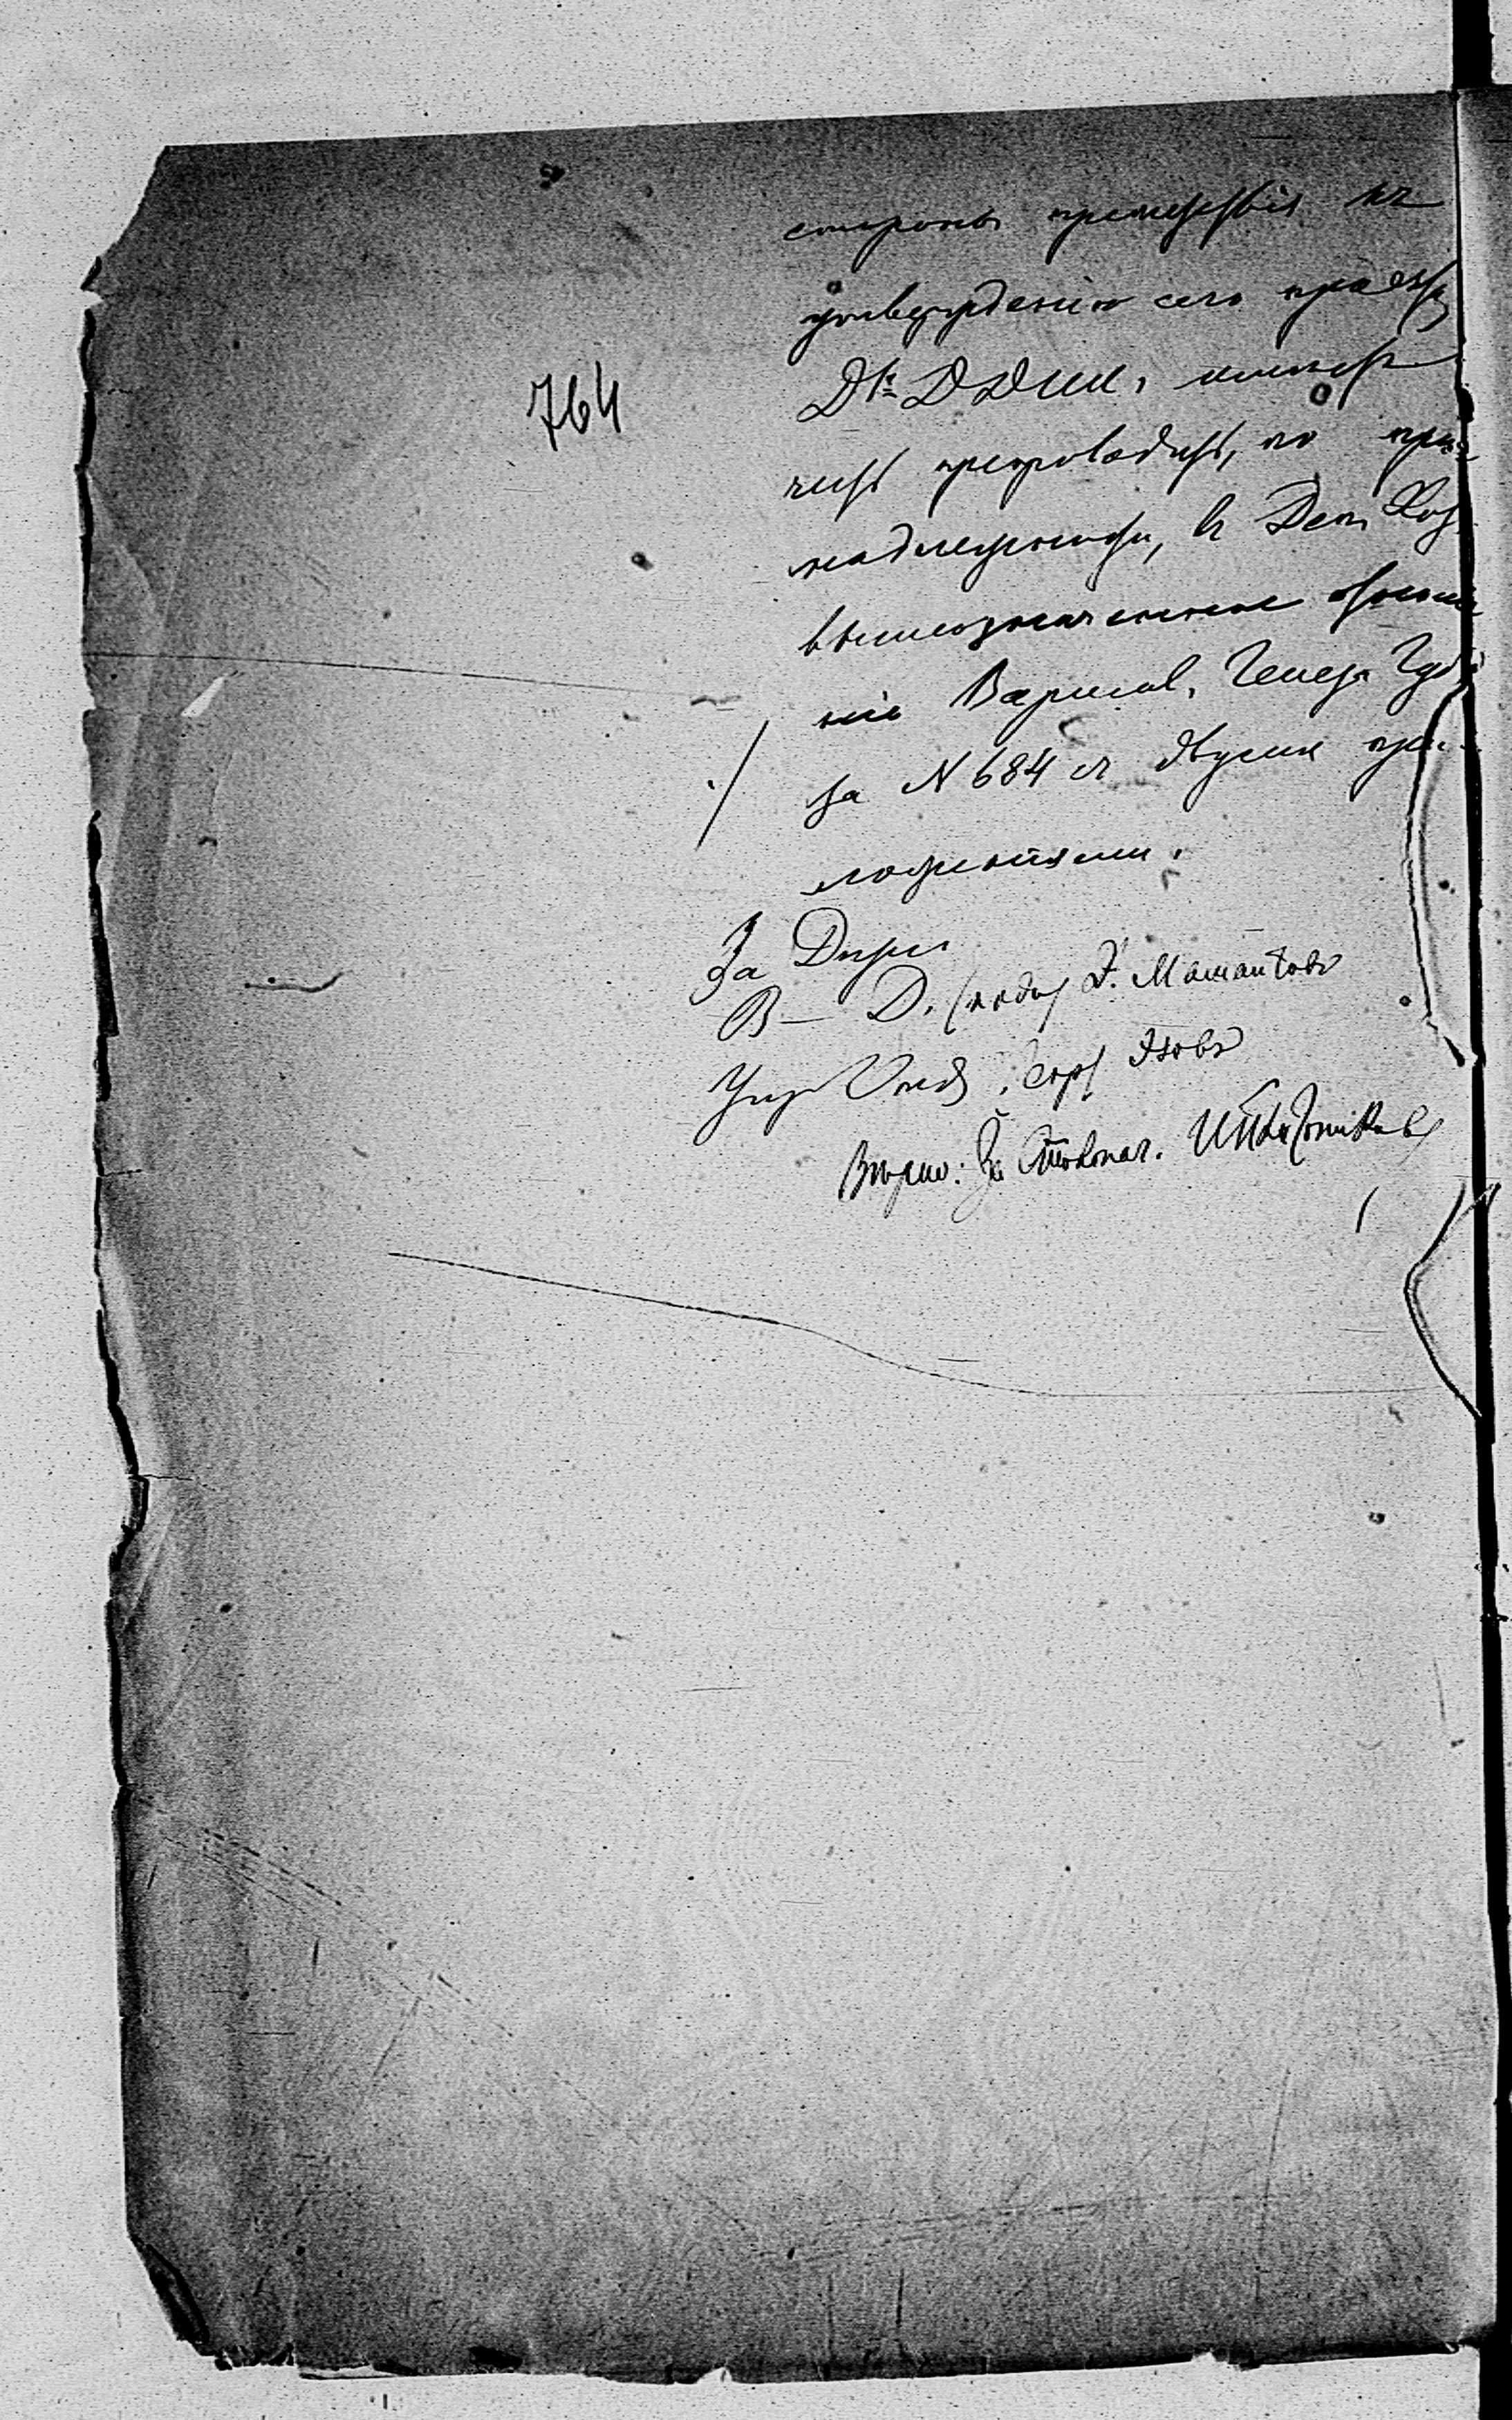 764
стороны препятствія къ
утвержденію сего проекта,
Д-тъ Д Д И И, имѣетъ
честь препроводить, по при-
надлежности, въ Деп. Хоз.
вышеозначенное отноше-
ніе Варшав. Генер. Губ.
за N 684 съ двумя при-
ложеніями.
За Дирек.
В— Д. (подп) Мамантовъ
Упр Отд. , скр Изовъ
Вѣрно: За Столонач.